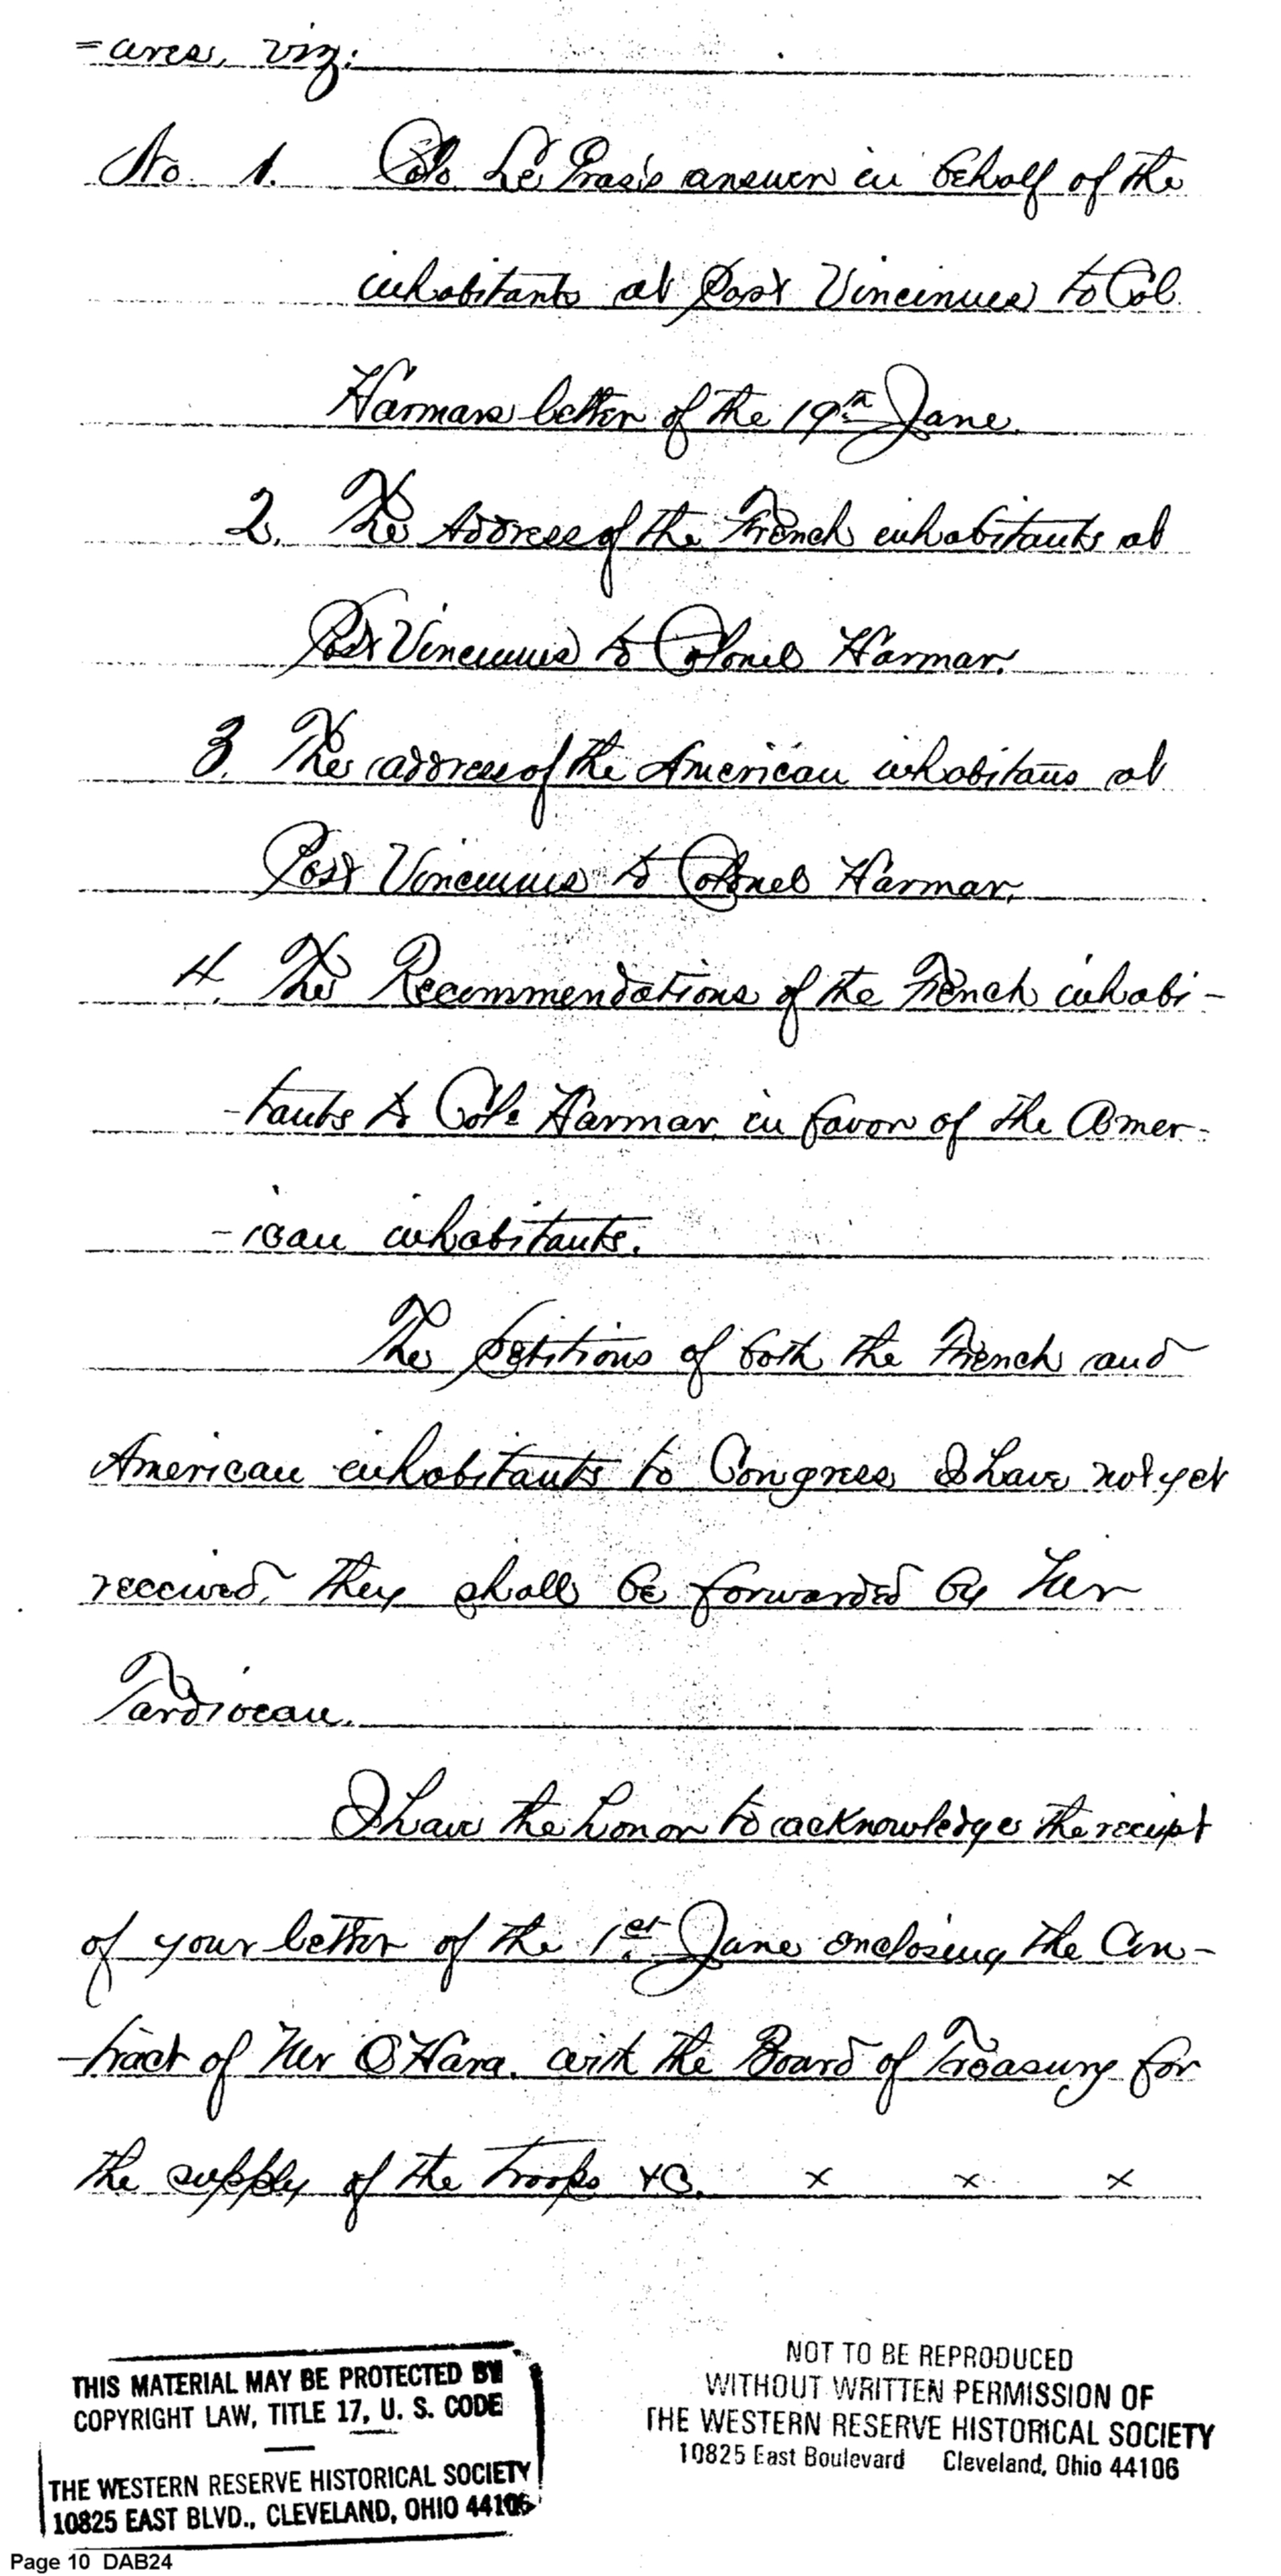 =ures, viz:
No. 1. Colo. Le Gras's answer in behalf of the
inhabitants at Post Vincinnes to Col.
Harmars letter of the 19th June.
2. The Address of the French inhabitants at
Post Vincinnes to Colonel Harmar.
3. The address of the American inhabitans at
Post Vincinnes to Colonel Harmar.
4. The Recommendations of the French inhabi-
-tants to Colo Harmar in favor of the Amer-
-ican inhabitants.
The petitions of both the French and
American inhabitants to Congress I have not yet
received, they shall be forwarded by Mr
Tardiveau.
I have the honor to acknowledge the receipt
of your letter of the 1st June enclosing the Con-
-tract of Mr O'Hara. with the Board of Treasury for
the supply of the troops &C. x x x
THIS MATERIAL MAY BE PROTECTED BY
COPYRIGHT LAW, TITLE 17, U. S. CODE
THE WESTERN RESERVE HISTORICAL SOCIETY
10825 EAST BLVD., CLEVELAND, OHIO 44106
NOT TO BE REPRODUCED
WITHOUT WRITTEN PERMISSION OF
THE WESTERN RESERVE HISTORICAL SOCIETY
10825 East Boulevard Cleveland, Ohio 44106
Page 10 DAB24